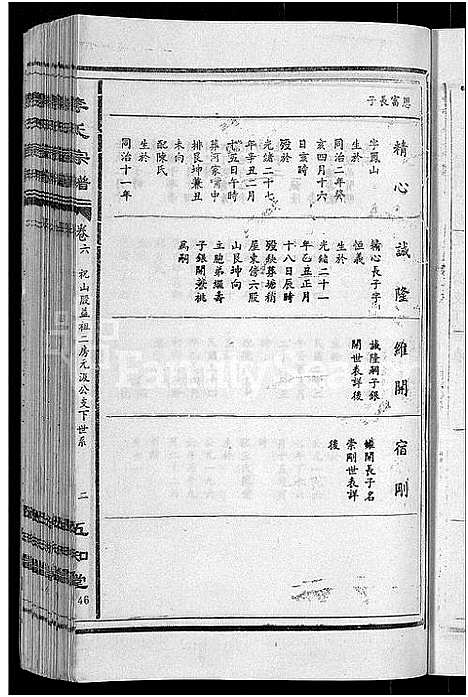 恩富長子
精心
字鳳山
生於
同治二年癸
亥四月十六
日亥時
歿於
光緒二十七
年辛丑二月
十五日午時
葬河家灣中
排艮坤兼丑
未向
配陳氏
生於
同治十一年
誠隆
精心長子字
恒義
生於
光緒二十一
年乙丑正月
十八日辰時
歿缺葬塘稍
屋東傍六股
山艮坤向
立胞弟繼壽
子銀開兼祧
為嗣
維開
誠隆嗣子銀
開世表詳後
宿剛
維開長子名
崇剛世表詳
後
氏宗譜
卷六 祝山股益祖二房元派公支下世系
二
五知堂
46